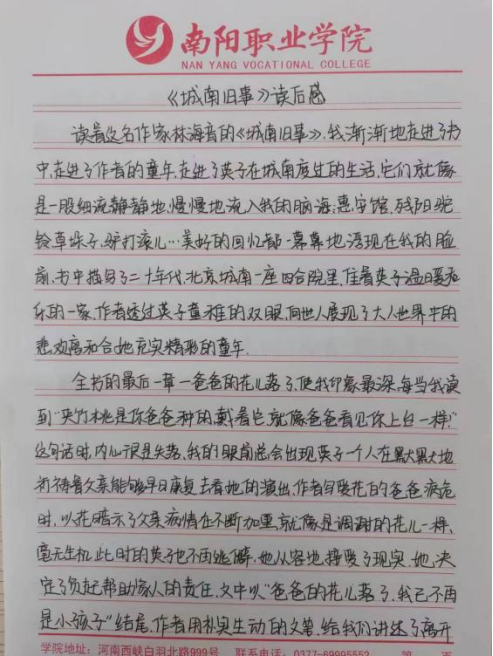 南阳职业学院
NAN YANG VOCATIONAL COLLEGE
《城南旧事》读后感
读着这名作家林海音的《城南旧事》,我渐渐地走进了书
中,走进了作者的童年,走进了英子在城南度过的生活,它们就像
是一股细流静静地,慢慢地流入我的脑海,惠安馆,残阳驼
铃草珠子,驴打滚儿…美好的回忆都一幕幕地浮现在我的脸
前,书中描写了二十年代,北京城南一座四合院里,住着英子温暖和
乐的一家,作者透过英子童稚的双眼,向世人展现了大人世界中的
悲欢离和合她充实精彩的童年.
全书的最后一章一爸爸的花儿落了,使我印象最深,每当我读
到"夹竹桃是你爸爸种的,戴着它,就像爸爸看见你上台一样!"
这句话时,内心很是失落,我的眼前总会出现英子一个人在默默地
祈祷着父亲能够早日康复去看她的演出,作者写爱花的爸爸病危
时,以花暗示了父亲病情在不断加重,就像是凋谢的花儿一样,
毫无生机,此时的英子也不再逃避,她从容地接受了现实,她决
定了负起帮助家人的责任,文中以"爸爸的花儿落了,我已不再
是小孩子"结尾,作者用朴实生动的文笔,给我们讲述了离开
学院地址:河南西峡白羽北路999号 联系电话:0377-69995552 第 页